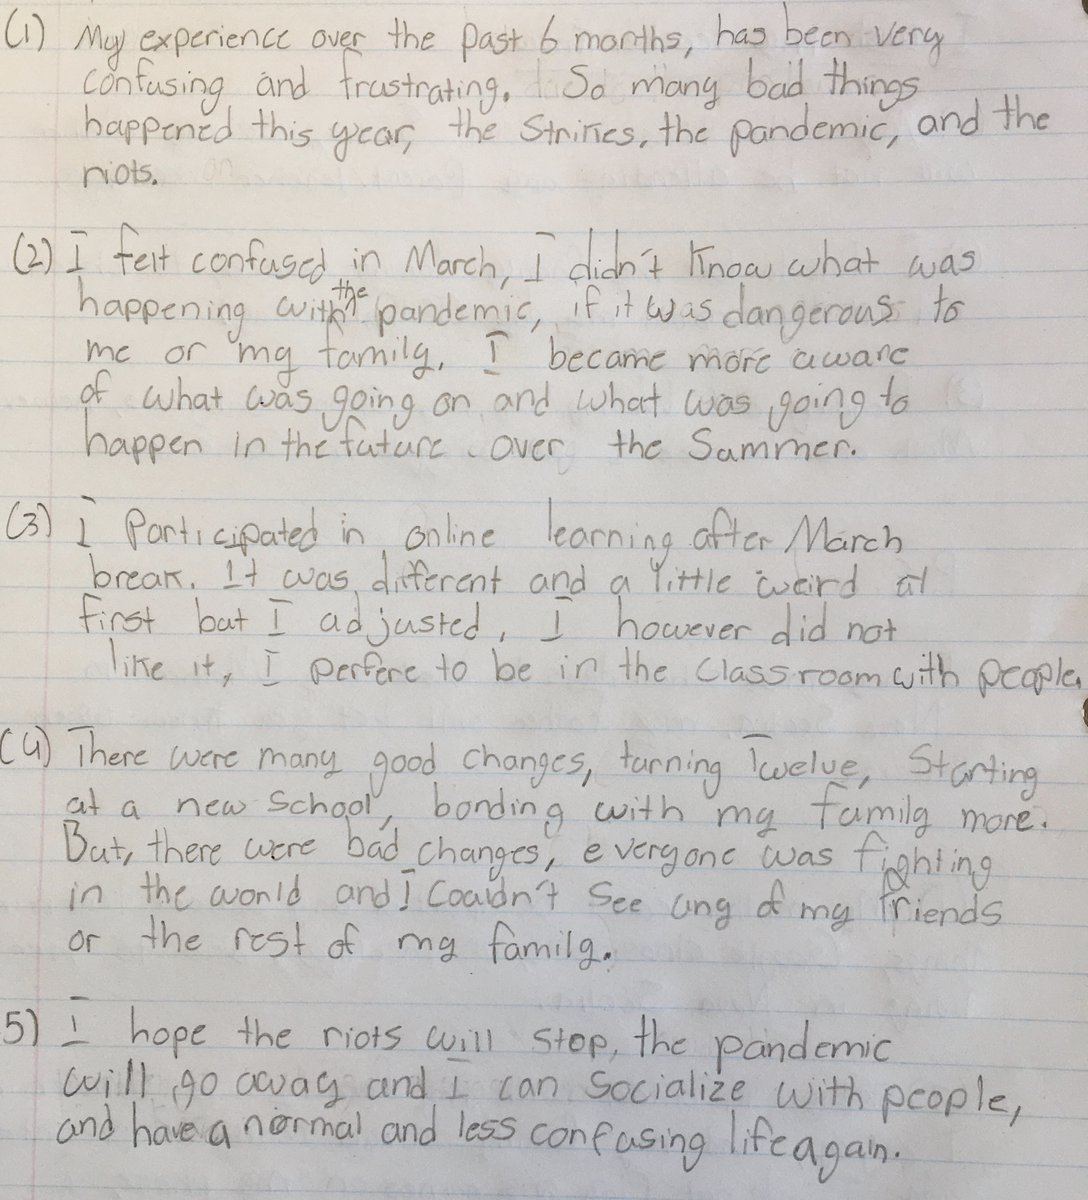 (1) My experience over the past 6 months, has been very
confusing and frustrating. So many bad things
happened this year, the Strikes, the pandemic, and the
riots.
(2) I felt confused in March, I didn't know what was
happening with the pandemic, if it was dangerous to
me or my family. I became more aware
of what was going on and what was going to
happen in the future over the Summer.
(3) I Participated in online learning after March
break. It was different and a little weird at
first but I adjusted, I however did not
like it, I perfere to be in the Classroom with people.
(4) There were many good changes, turning Twelve, Starting
at a new School, bonding with my family more.
But, there were bad changes, everyone was fighting
in the world and I Couldn't See any of my friends
or the rest of my family.
5) I hope the riots will stop, the pandemic
will go away and I can Socialize with people,
and have a normal and less confusing life again.